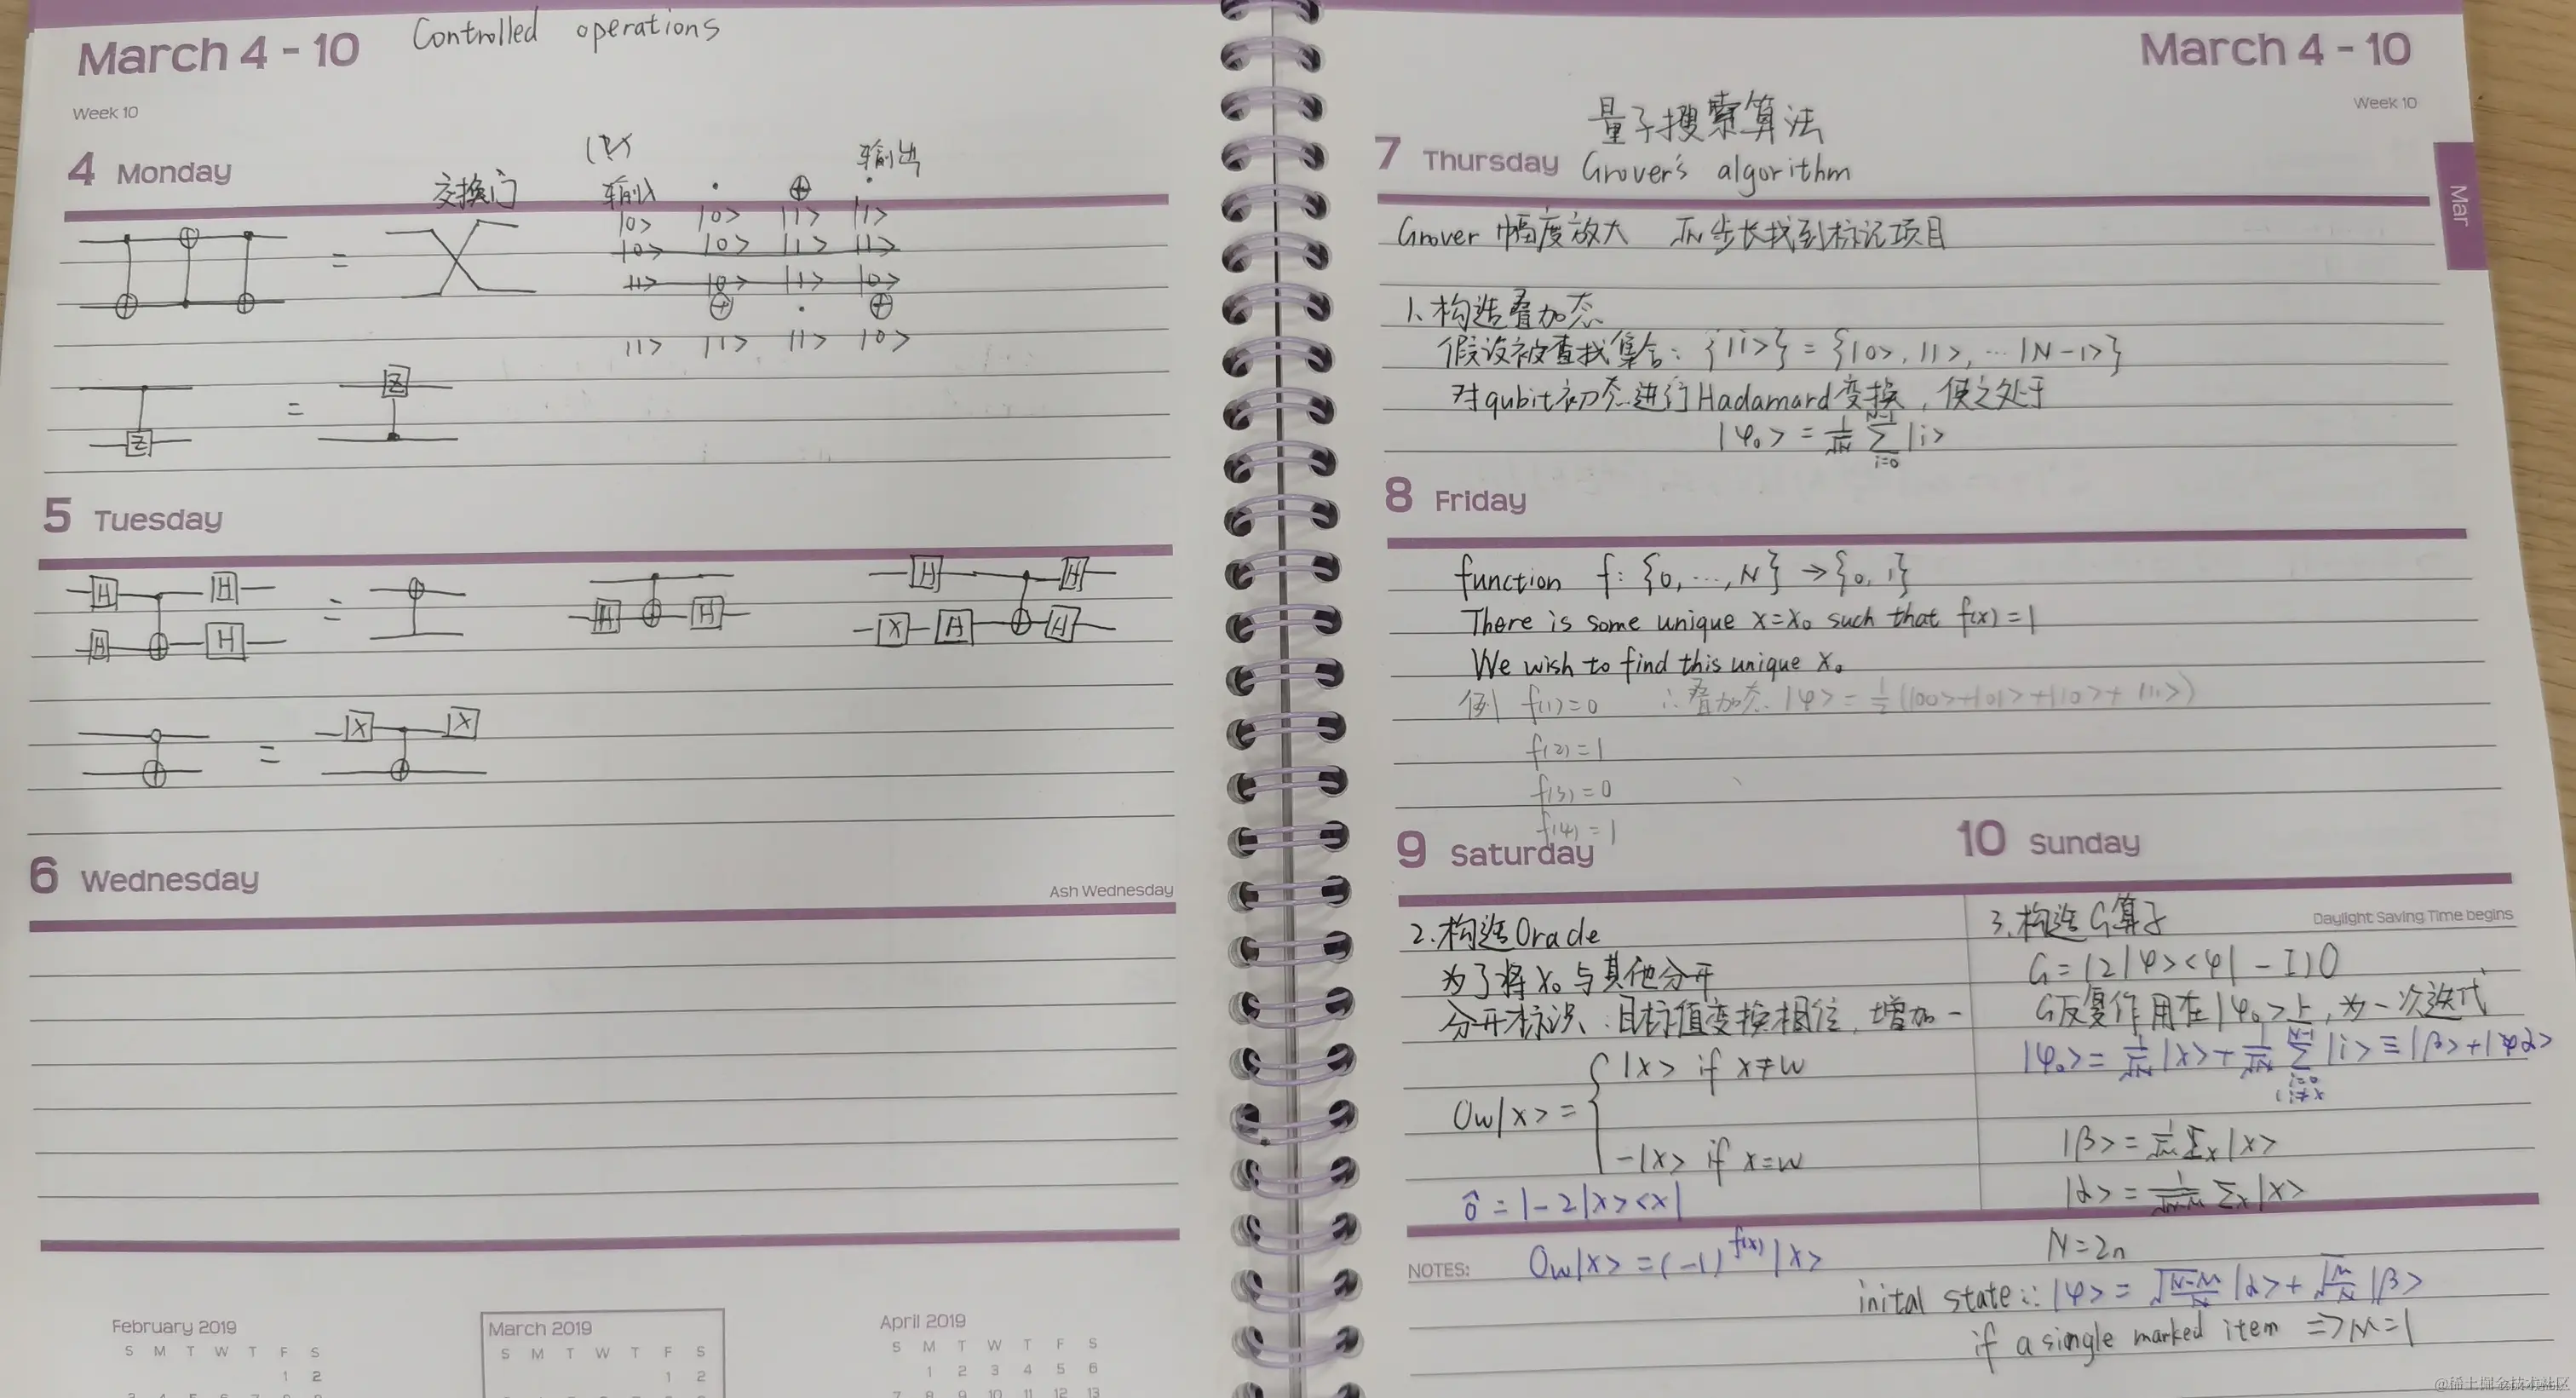 March 4 - 10 Controlled operations
Week 10
4 Monday
交换门
输入 · ⊕ 输出
|0> |0> |1> |1>
|0> |0> |1> |1>
|1> |0> |1> |0>
⊕ · ⊕
|1> |1> |1> |0>
=
Z = Z
5 Tuesday
H H = H H X H H
H H
X X
=
6 Wednesday
Ash Wednesday
February 2019
S M T W T F S
1 2
March 2019
S M T W T F S
1 2
April 2019
S M T W T F S
1 2 3 4 5 6
7 8 9 10 11 12 13
March 4 - 10
Week 10
Mar
量子搜索算法
7 Thursday Grover's algorithm
Grover 幅度放大 √N步长找到标记项目
1、构造叠加态
假设被查找集合: {|i>} = {|0>, |1>, ... |N-1>}
对qubit初态进行Hadamard变换, 使之处于
|φ₀> = 1/√N Σ_{i=0}^{N-1} |i>
8 Friday
function f: {0, ..., N} → {0, 1}
There is some unique x=x₀ such that f(x)=1
We wish to find this unique x₀
例 f(1)=0 ∴叠加态 |φ> = 1/2 (|00>+|01>+|10>+|11>)
f(2)=1
f(3)=0
f(4)=1
9 Saturday
2.构造Oracle
为了将x₀与其他分开
分开标识:目标值变换相位,增加一
Ow|x> = { |x> if x≠w
-|x> if x=w
ô = 1-2|x><x|
10 Sunday
Daylight Saving Time begins
3.构造G算子
G=(2|φ><φ| - I)O
G反复作用在|φ₀>上,为一次迭代
|φ₀> = 1/√N |x> + 1/√N Σ_{i=0, i≠x}^{N-1} |i> ≡ |β>+|α>
|β> = 1/√M Σx|x>
|α> = 1/√N-M Σx|x>
NOTES: Ow|x> = (-1)^f(x) |x>
N=2n
inital state:: |φ> = √(N-M)/N |α> + √M/N |β>
if a single marked item => M=1
@稀土掘金技术社区